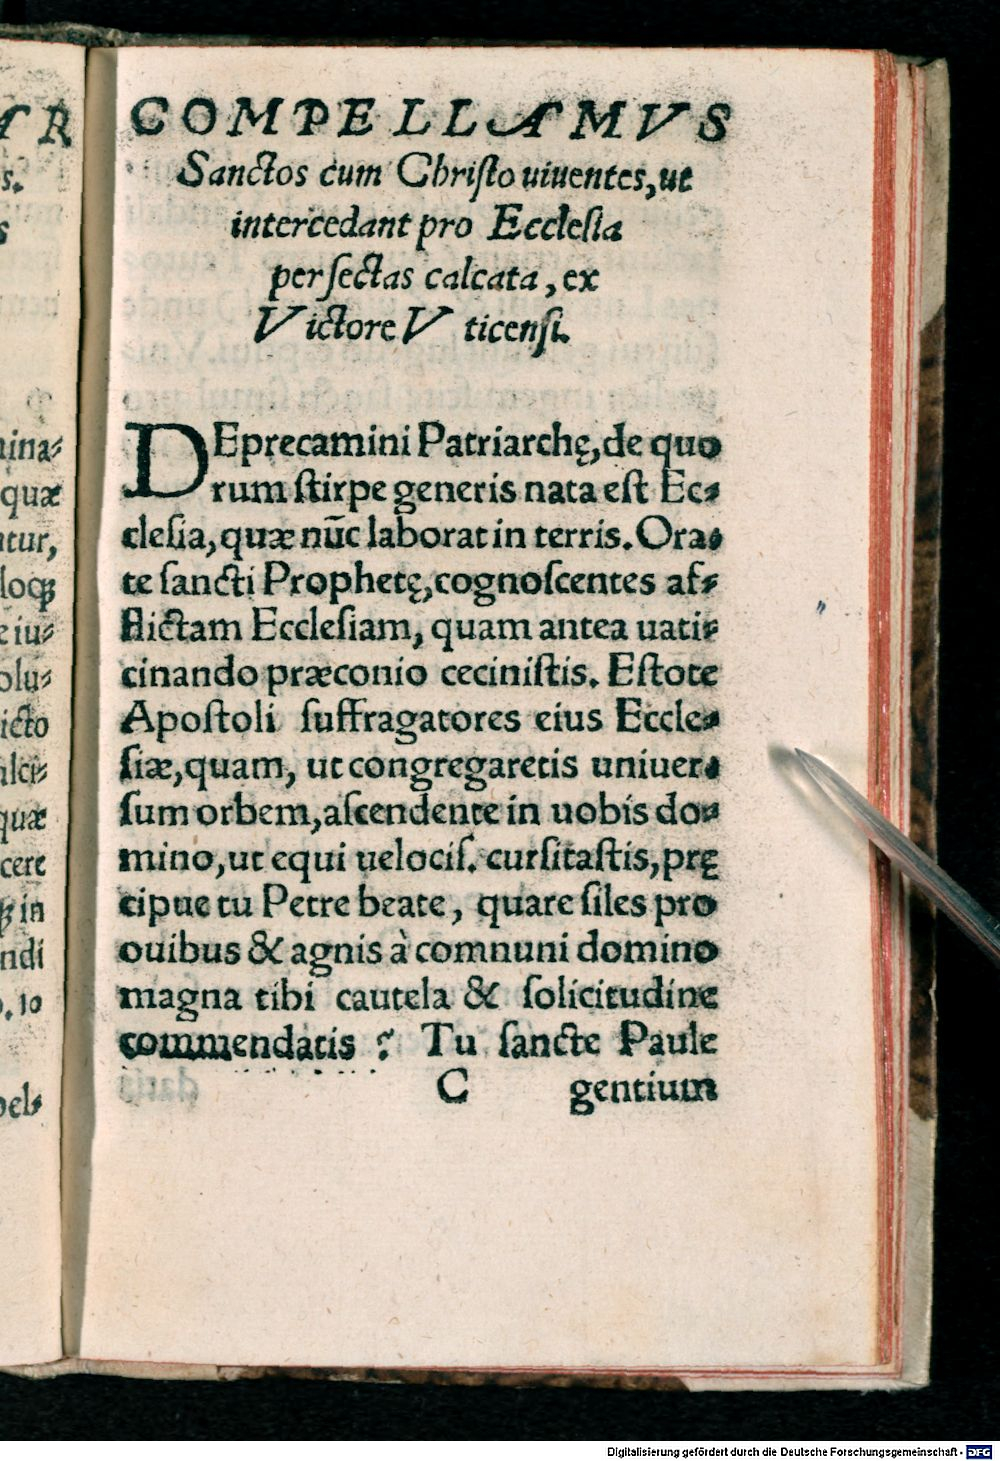 COMPELLAMVS
Sanctos cum Christo uiuentes, ut
intercedant pro Ecclesia
per sectas calcata, ex
Victore Vticensi.
DEprecamini Patriarchę, de quo
rum stirpe generis nata est Ec-
clesia, quæ nūc laborat in terris. Ora-
te sancti Prophetę, cognoscentes af-
flictam Ecclesiam, quam antea uati-
cinando præconio cecinistis. Estote
Apostoli suffragatores eius Eccle-
siæ, quam, ut congregaretis uniuer-
sum orbem, ascendente in uobis do-
mino, ut equi uelocis. cursitastis, prę
cipue tu Petre beate, quare siles pro
ouibus & agnis à comnuni domino
magna tibi cautela & solicitudine
commendatis ? Tu sancte Paule
C gentium
ina-
quæ
tur,
loqꝫ
e iu-
olu-
icto
ulci-
quæ
cere
ꝫ in
ndi
o. 10
pel-
Digitalisierung gefördert durch die Deutsche Forschungsgemeinschaft - DFG